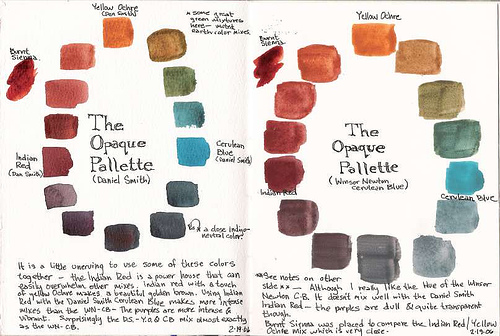 Yellow Ochre
(Dan Smith)
* some great
green mixtures
here - violet
earth color mixes.
Burnt
Sienna
The
Opaque
Pallette
(Daniel Smith)
Indian
Red
(Dan Smith)
Cerulean
Blue
(Daniel Smith)
* a dose Indigo-
neutral color.
It is a little unerving to use some of these colors
together - the Indian Red is a power house that can
easily overwhelm other mixes. indian red with a touch
of yellow ochre makes a beautiful golden brown. Using Indian
Red with the Daniel Smith Cerulean Blue makes more intense
mixes than the WN-CB- The purples are more intense &
vibrant. Surprisingly the D.S.- Y.O. & CB mix almost exactly
as the WN-CB.
2-19-06
Yellow Ochre
Burnt
Sienna
The
Opaque
Pallette
(Winsor Newton
cerulean Blue)
Indian Red
Cerulean Blue
*See notes on other
side ** - Although I really like the Hue of the Winsor
Newton C.B. It doesn't mix well with the Daniel Smith
Indian Red - the purples are dull & quite transparent
though.
Burnt Sienna was placed to compare the Indian Red / Yellow
Ochre Mix which is very close.
2-19-06